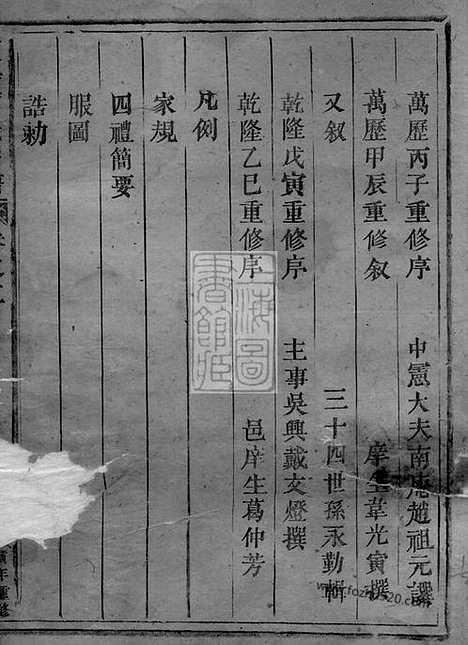 萬歷丙子重修序 中憲大夫南庵趙祖元譔
萬歷甲辰重修叙 庠生韋光寅撰
又叙 三十四世孫永勤輯
乾隆戊寅重修序 主事吳興戴文燈撰
乾隆乙巳重修序 邑庠生葛仲芳
凡例
家規
四禮簡要
服圖
誥勅
上海圖書館藏